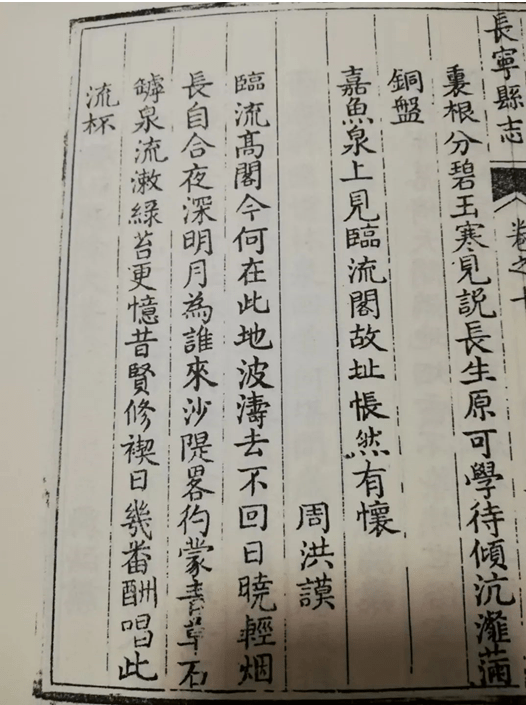 長寧縣志
卷之十
裏根分碧玉寒見説長生原可學待傾沆瀣滿
銅盤
嘉魚泉上見臨流閣故址悵然有懷
周洪謨
臨流髙閣今何在此地波濤去不回日曉輕烟
長自合夜深明月為誰來沙隄畧彴蒙青草石
罅泉流漱綠苔更憶昔賢修禊日幾番酬唱此
流杯